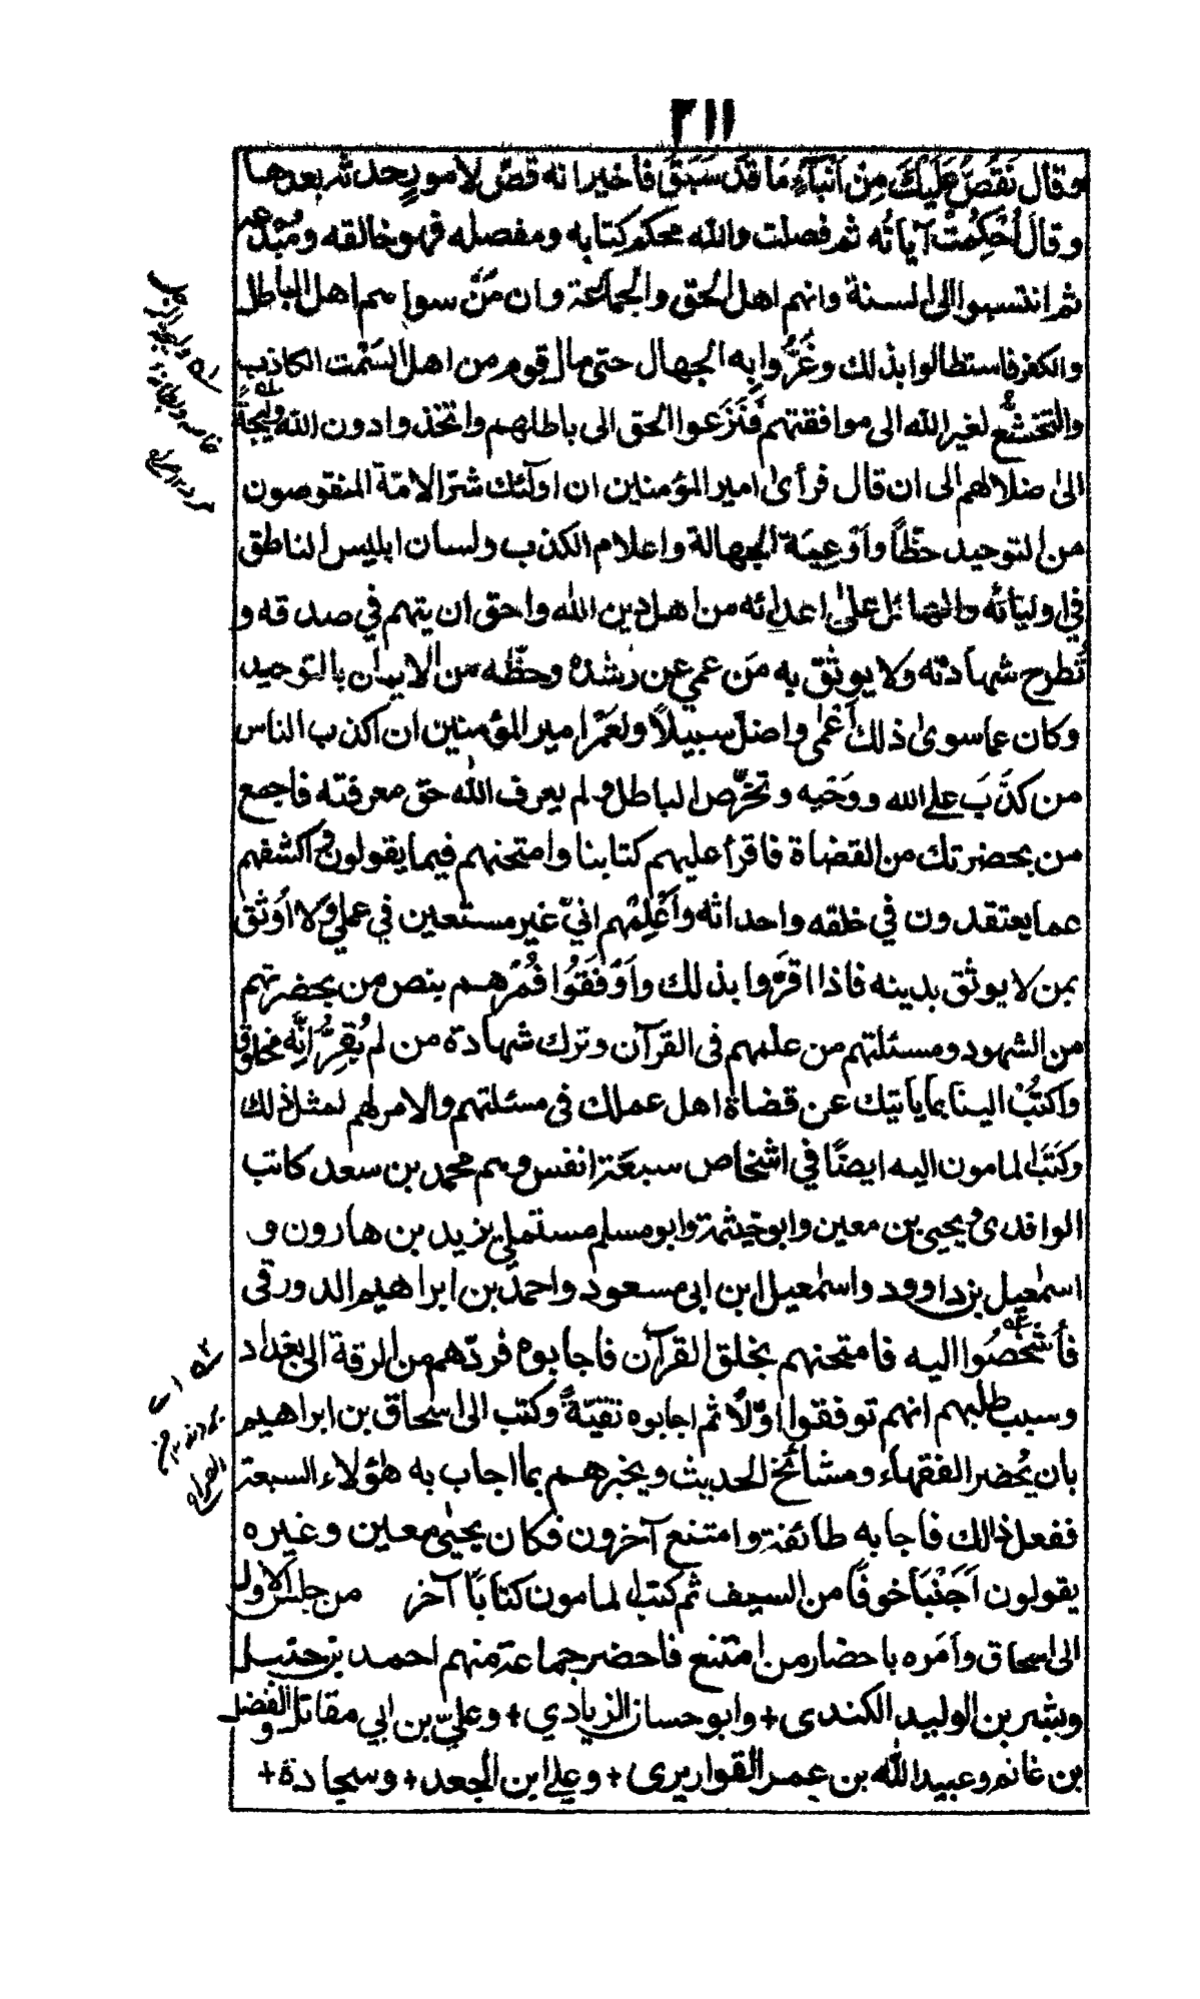 ٣١١
وقال نَقُصُّ عَلَيْكَ مِنْ اَنْبَآءِ مَا قَدْ سَبَقَ فاخبر انه قصّ لامورٍ حدثه بعدها
وقال اُحْكِمَتْ آياتُه ثم فصلت والله محكم كتابه ومفصله فهو خالقه ومُبْدعه
ثم انتسبوا الى السنة وانهم اهل الحق والجماعة وان مَنْ سواهم اهل الباطل
والكفر فاستطالوا بذلك وغَرُّوا به الجهال حتى مال قوم من اهل السَمْت الكاذب
والتخشّع لغير الله الى موافقتهم فَنَزَعوا الحق الى باطلهم واتخذوا دون الله وليجةً
الى ضلالهم الى ان قال فرأى امير المؤمنين ان اولٓئك شرّ الامّة المنقوصون
من التوحيد حظّاً واَوْعِيَة الجهالة واعلام الكذب ولسان ابليس الناطق
في اوليائه والهائل على اعدائه من اهل دين الله واحق ان يتهم في صدقه و
تُطرح شهادته ولا يوثق به مَن عمي عن رُشده وحظّه من الايمان بالتوحيد
وكان عما سوى ذلك اَعْمى واضلّ سبيلاً ولعَمْر امير المؤمنين ان اكذب الناس
من كذَبَ على الله ووَحْيه وتخرّص الباطل ولم يعرف الله حق معرفته فاجمع
من بحضرتك من القضاة فاقرأ عليهم كتابنا وامتحنهم فيما يقولون واكشفهم
عما يعتقدون في خلقه واحداثه واَعْلِمْهم انيّ غير مستعين في عملي ولا اَوثق
بمن لا يوثق بدينه فاذا اقرّوا بذلك واَوْفَقُوا فُمُرْهم بنص من بحضرتهم
من الشهود ومسئلتهم من علمهم فى القرآن وترك شهادة من لم يُقِرُّ اَنّه مخلوق
واكتُبْ الينا بما يأتيك عن قضاة اهل عملك فى مسئلتهم والامر لهم لمثل ذلك
وكَتَبَ المامون اليه ايضًا في اشخاص سبعة انفس وهم محمد بن سعد كاتب
الواقدى ويحيى بن معين وابو خيثمة وابو مسلم مستملي يزيد بن هارون و
اسمٰعيل بن داوود واسمٰعيل ابن ابى مسعود واحمد بن ابراهيم الدورقى
فأشْخَصُوا اليه فامتحنهم بخلق القرآن فاجابوه فردّهم من الرقة الى بغداد
وسبب طلبهم انهم توفقوا اوّلًا ثم اجابوه تقيّةً وكتب الى اسحاق بن ابراهيم
بان يُحضر الفقهاء ومشائخ الحديث ويخبرهم بما اجاب به هٰؤلاء السبعة
ففعل ذالك فاجابه طائفة وامتنع آخرون فكان يحيىٰ معين وغيره
يقولون اَجَبْنا خوفًا من السيف ثم كتب المامون كتابًا آخر من جلس الاول
الى اسحاق وأمَره باحضار من امتنع فاحضر جماعة منهم احمد بن حنبل
وبشر بن الوليد الكندى + وابو حسان الزيادي + وعليّ بن ابي مقاتل والفضل
بن غانم وعبيد الله بن عمر القواريرى + وعلي ابن الجعد + وسجادة +